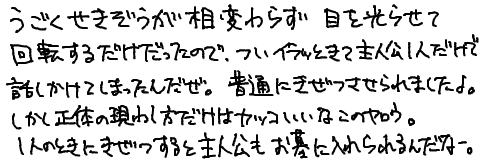 うごくせきぞうが相変わらず 目を光らせて
回転するだけだったので、ついイラッときて主人公1人だけで
話しかけてしまったんだぜ。普通にきぜつさせられましたよ。
しかし正体の現わし方だけはカッコいいなこのヤロウ。
1人のときにきぜつすると主人公もお墓に入れられるんだなー。